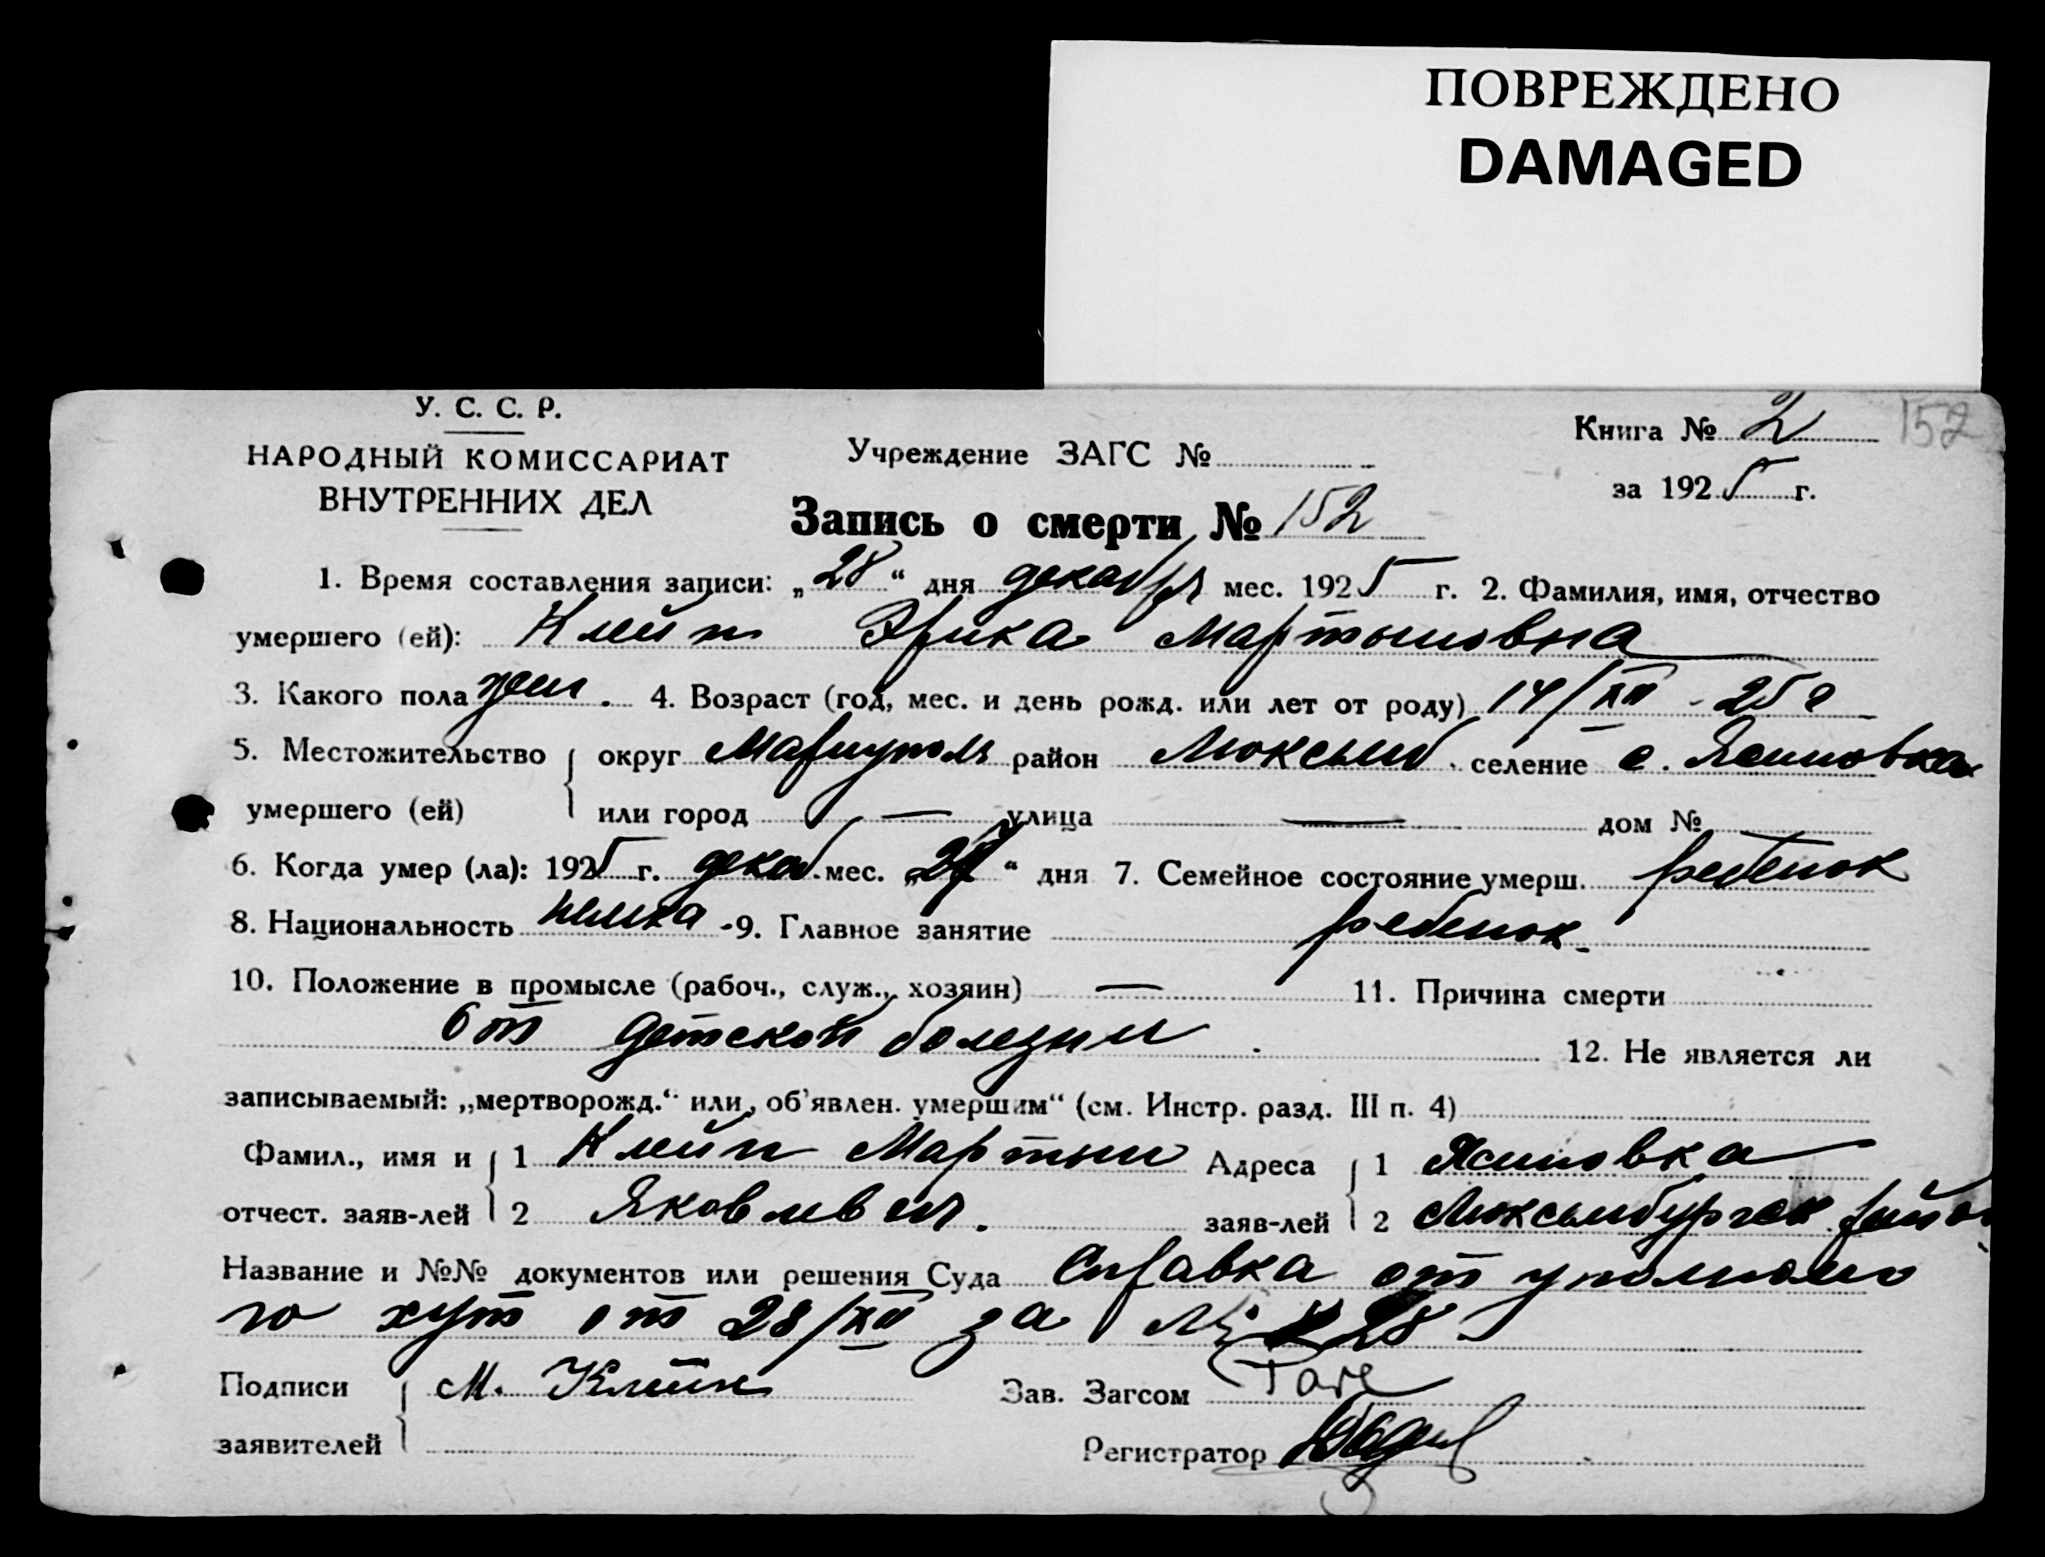 ПОВРЕЖДЕНО
DAMAGED
У. С. С. Р.
НАРОДНЫЙ КОМИССАРИАТ
ВНУТРЕННИХ ДЕЛ
Учреждение ЗАГС №
Книга № 2
152
за 1925 г.
Запись о смерти № 152
1. Время составления записи: „28“ дня декабря мес. 1925 г. 2. Фамилия, имя, отчество
умершего (ей): Клейн Эрика Мартыновна
3. Какого пола жен. 4. Возраст (год, мес. и день рожд. или лет от роду) 14/XII - 25 г
5. Местожительство округ Мариуполь район Люксемб. селение с. Ясиновка
умершего (ей) или город — улица — дом №
6. Когда умер (ла): 1925 г. декаб. мес. „27“ дня 7. Семейное состояние умерш. ребенок
8. Национальность немка 9. Главное занятие ребенок.
10. Положение в промысле (рабоч., служ., хозяин) — 11. Причина смерти
от детской болезни 12. Не является ли
записываемый: „мертворожд.“ или „об'явлен. умершим“ (см. Инстр. разд. III п. 4)
Фамил., имя и 1 Клейн Мартын Адреса 1 Ясиновка
отчест. заяв-лей 2 Яковлевич. заяв-лей 2 Люксембургск. район
Название и №№ документов или решения Суда Справка от уполномо
го хут от 28/XII за № 28
Подписи М. Клейн Зав. Загсом
заявителей Регистратор